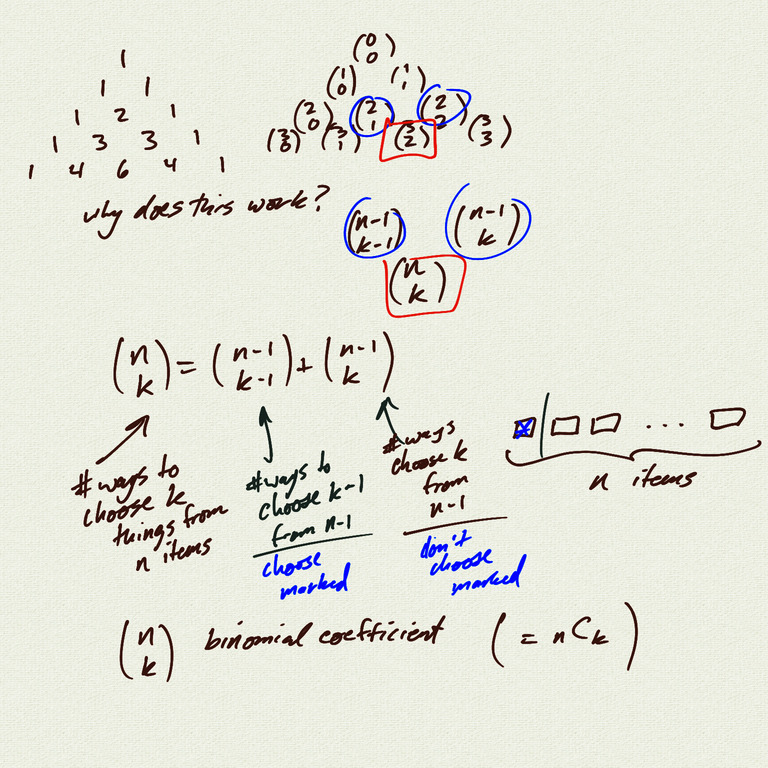 1
1 1
1 2 1
1 3 3 1
1 4 6 4 1
why does this work?
(0 0)
(1 0) (1 1)
(2 0) (2 1) (2 2)
(3 0) (3 1) (3 2) (3 3)
(n-1 k-1) (n-1 k)
(n k)
(n k) = (n-1 k-1) + (n-1 k)
# ways to
choose k
things from
n items
# ways to
choose k-1
from n-1
choose
marked
# ways
choose k
from
n-1
don't
choose
marked
x ...
n items
(n k) binomial coefficient ( = nCk )